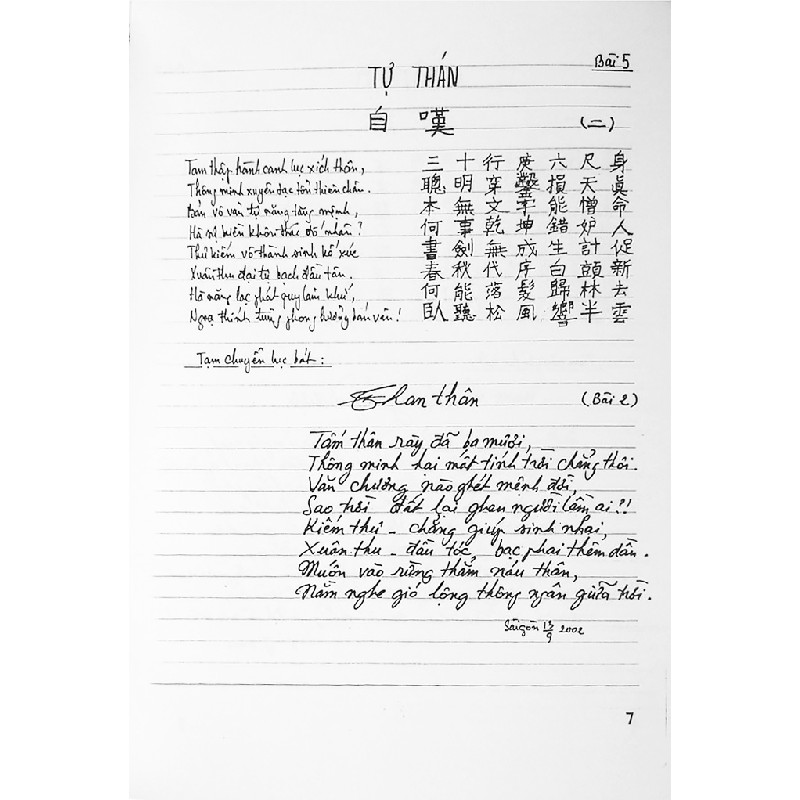 Bài 5
TỰ THÁN
自嘆
(二)
Tam thập hành canh lục xích thân,
Thông minh xuyên tạc tổn thiên chân.
Bản vô văn tự năng tăng mệnh,
Hà sự kiền khôn thác đố nhân?
Thư kiếm vô thành sinh kế xúc
Xuân thu đại tự bạch đầu tân.
Hà năng lạc phát quy lâm khứ,
Ngọa thính tùng phong hưởng bán vân!
三十行庚六尺身
聰明穿鑿損天眞
本無文字能憎命
何事乾坤錯妒人
書劍無成生計促
春秋代序白頭新
何能落髮歸林去
臥聽松風響半雲
Tạm chuyển lục bát:
Than thân
(Bài 2)
Tấm thân rày đã ba mươi,
Thông minh hại mất tính trời chẳng thôi.
Văn chương nào ghét mệnh đời,
Sao trời đất lại ghen người lầm ai?!
Kiếm thư - chẳng giúp sinh nhai,
Xuân thu - đầu tóc, bạc phai thêm dần.
Muốn vào rừng thẳm náu thân,
Nằm nghe gió lộng thông ngân giữa trời.
Sàigòn 13/9 2002
7